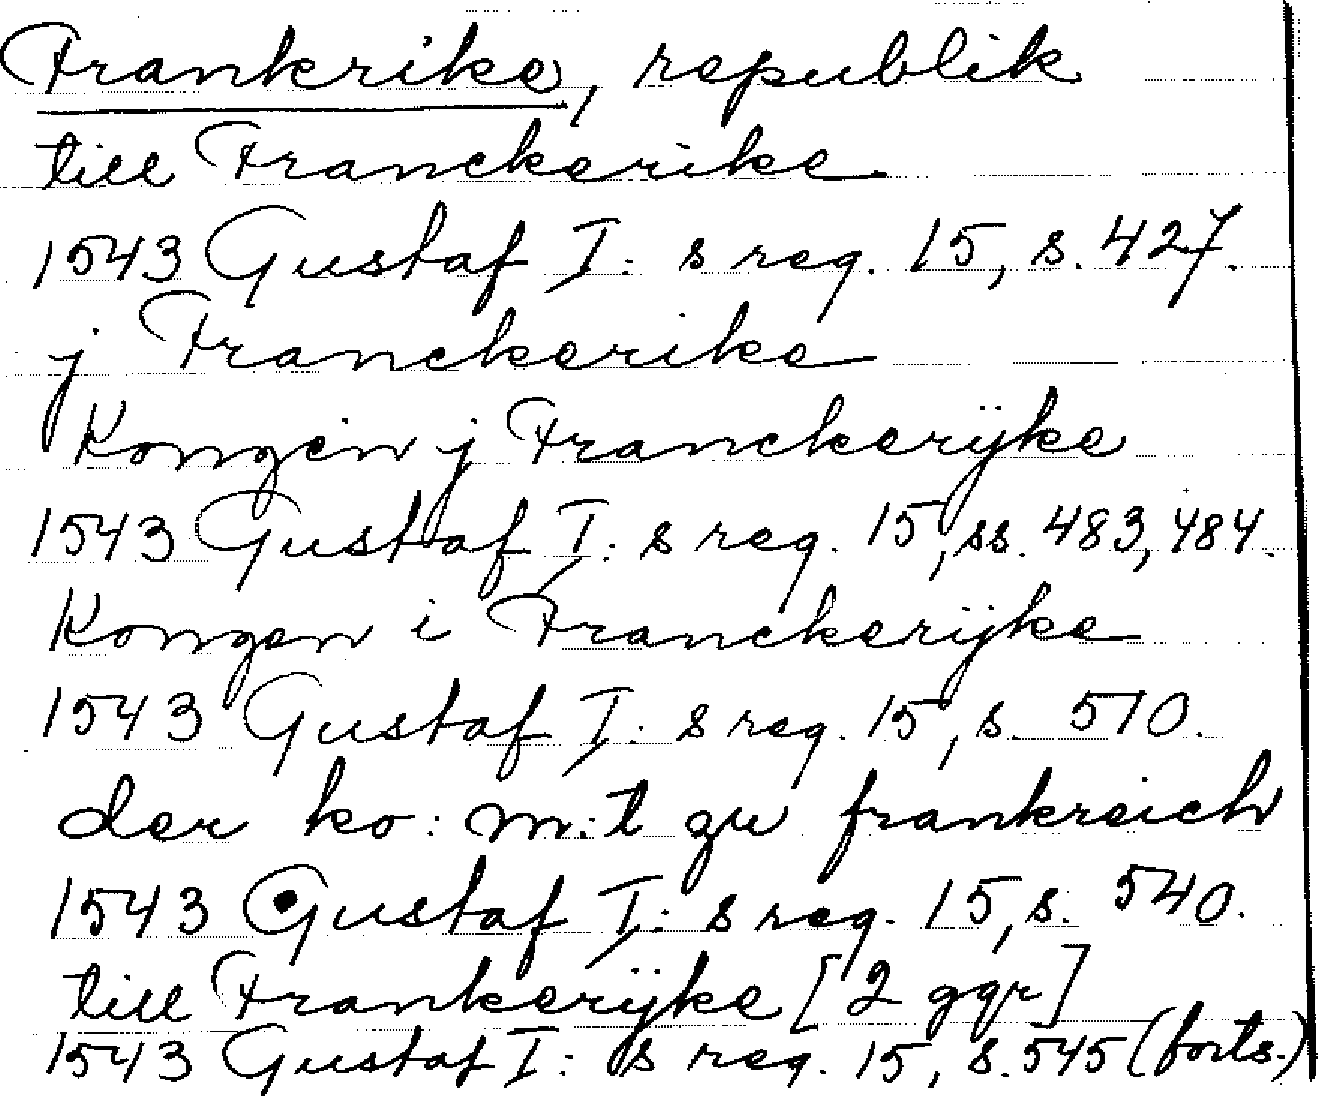 Frankrike, republik
till Franckerike
1543 Gustaf I: s reg. 15, s. 427.
j Franckerike
Kongen j Franckerÿke
1543 Gustaf I: s reg. 15, ss. 483, 484.
Kongen i Franckerÿke
1543 Gustaf I: s reg. 15, s. 510.
der ko: m:t zu frankreich
1543 Gustaf I: s reg. 15, s. 540.
till Frankerÿke [2 ggr]
1543 Gustaf I: s reg. 15, s. 545 (forts.)